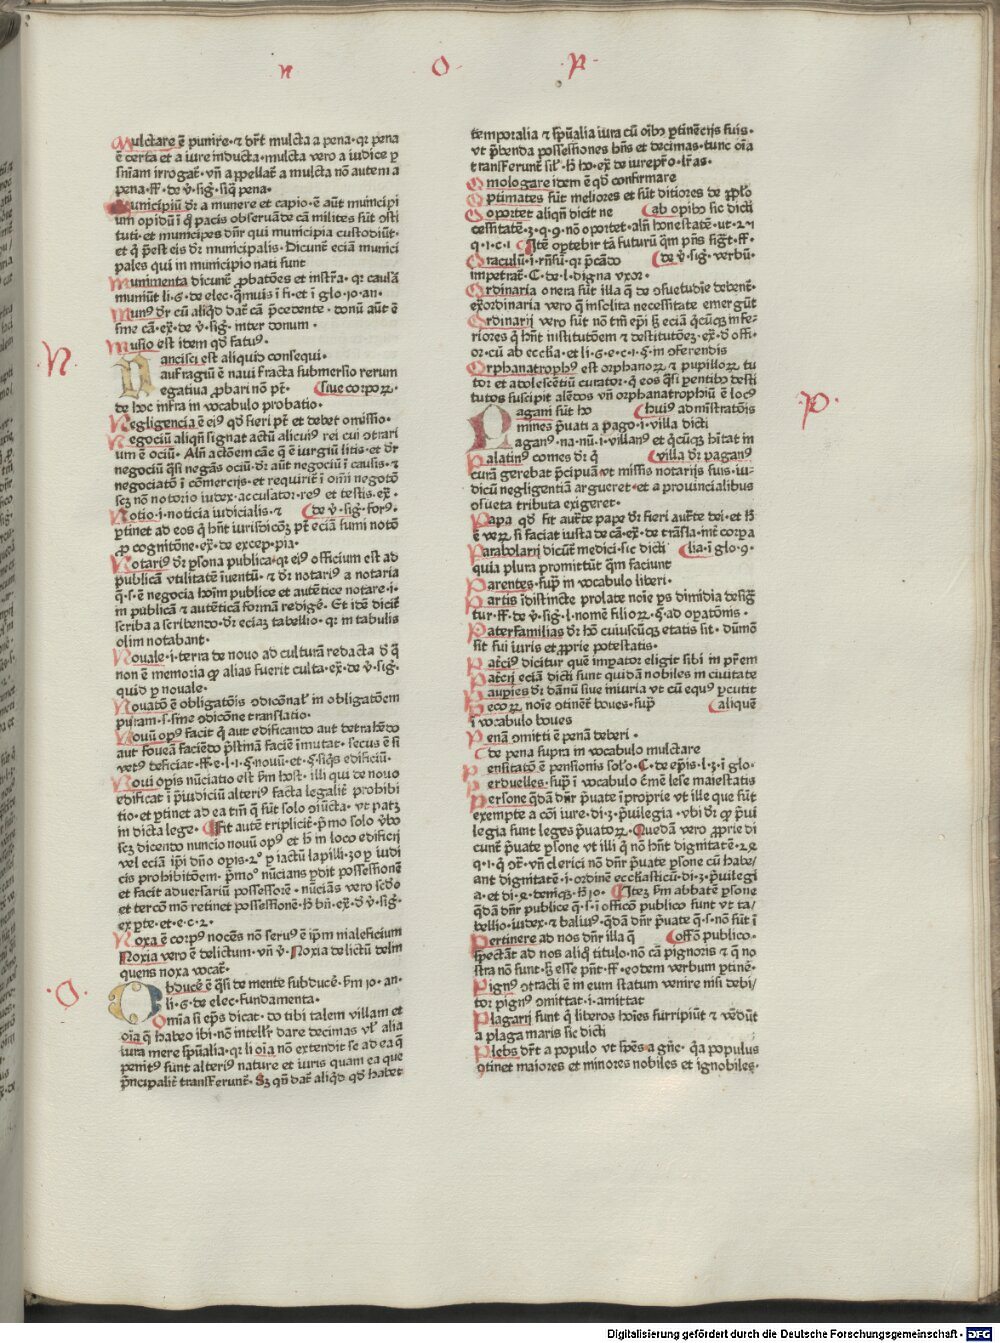 n O P
Mulctare ē punire·⁊ dr̄t mulcta a pena·qꝛ pena
ē certa et a iure inducta·mulcta vero a iudice ꝑ
sn̄iam irrogat̄·vn̄ appellat̄ a mulcta nō autem a
pena·ff·de v̄·sig·siq̄ pena·
Municipiū dr̄ a munere et capio·ē aūt municipi
um opidū ī q̄ pacis obseruāde cā milites sūt ɔsti
tuti·et municipes dn̄r qui municipia custodiūt·
et q̄ p̄est eis dr̄ municipalis·Dicunt̄ eciā munici
pales qui in municipio nati sunt
Munimenta dicunt̄ ꝓbatōes et instr̄a·qꝛ causā
muniūt li·6·de elec·q̄muis ī fi·et ī glo·io·an·
Mun⁹ dr̄ cū aliqd̄ dat̄ cā p̄cedente·donū aūt ē
sine cā·ex̄·de v̄·sig·inter donum·
Musio est idem qd̄ fatus·
N
Nancisci est aliquid consequi·
Naufragiū ē navi fracta submersio rerum
Negatiua ꝓbari nō pt̄· siue corpoꝝ·
de hoc infra in vocabulo probatio·
Negligencia ē ei⁹ qd̄ fieri pt̄ et debet omissio·
Negociū aliqn̄ signat actū alicui⁹ rei cui ɔtrari
um ē ociū·Aln̄ actōem cāe q̄ ē iurgiū litis·et dr̄
negociū q̄si negās ociū·dr̄ aūt negociū ī causis·⁊
negociatō ī cōmercijs·et requirit̄ ī om̄i negotō
scꝫ nō notorio iudex·accusator·re⁹ et testis·ex̄·
Notio·i·noticia iudicialis·⁊ de v̄·sig·for⁹·
ꝑtinet ad eos q̄ hn̄t iurisdicōꝫ pt̄ eciā sumi notō
ꝓ cognitōne·ex̄·de excep·pia·
Notari⁹ dr̄ ꝑsona publica·qꝛ ei⁹ officium est ad
publicā vtilitatē iuentū·⁊ dr̄ notari⁹ a notaria
q·s·ē negocia hoīm publice et autētice notare·i·
in publicā ⁊ autēticā formā redige·Et idē dicit̄
scriba a scribendo·dr̄ eciaꝫ tabellio·qꝛ in tabulis
olim notabant·
Nouale·i·terra de nouo ad culturā redacta d̄ q̄
non ē memoria ꝙ alias fuerit culta·ex̄·de v̄·sig·
quid ꝑ nouale·
Nouatō ē obligatōis ɔdicōnal' in obligatōem
puram·s·sine ɔdicōne translatio·
Nouū op⁹ facit q̄ aut edificando aut detrahēdo
aut foueā faciēdo p̄stinā faciē īmutat·secus ē si
vet⁹ deficiat·ff·e·l·i·§·nouū·et·§·siq̄s edificiū·
Noui opis nūciatio est ẜm host·illi qui de nouo
edificat ī p̄iudiciū alteri⁹ facta legalit̄ prohibi
tio·et ꝑtinet ad ea tm̄ q̄ sūt solo ɔiūcta·vt patꝫ
in dicta lege·Fit autē triplicit̄·p̄mo solo v̄bo
scꝫ dicendo nuncio nouū op⁹ et h̄ in loco edificij
vel eciā ip̄i dn̄o opis·2º ꝑ iactū lapilli·3o ꝑ iudi
cis prohibitōem·p̄mo⁰ nūcians ꝑdit possessionē
et facit aduersariū possessorē·nūciās vero scd̄o
et tercō mō retinet possessionē·h̄ hn̄·ex̄·d̄ v̄·sig·
ex ꝑte·et·e·c·2·
Noxa ē corp⁹ nocēs nō seru⁹ ē ip̄m maleficium
Noxia vero ē delictum·vn̄ v̄·Noxia delictū delin
quens noxa vocat̄·
O·
Obducē ē q̄si de mente subducē·ẜm io·an·
li·6·de elec·fundamenta·
Omīa si ep̄s dicat·do tibi talem villam et
oīa q̄ habeo ibi·nō intellꝛ̄ dare decimas vl' alia
iura mere sp̄ualia·qꝛ li oīa nō extendit se ad ea q̄
penit⁹ sunt alteri⁹ nature et iuris quam ea que
p̄ncipalit̄ transferunt̄·Sꝫ qn̄ dat̄ aliqd̄ qd̄ habet
temporalia ⁊ sp̄ualia iura cū oīb⁹ ꝑtinēcijs suis·
vt p̄benda possessiones hn̄s et decimas·tunc oīa
transferunt̄ sil'·h̄ ho·ex̄·de iurepr̄o·lr̄as·
Omologare idem ē qd̄ confirmare
Optimates sūt meliores et sūt ditiores de ꝓplo
Oportet aliqn̄ dicit ne ab opib⁹ sic dicti
cessitatē·3·q·9·nō oportet·aln̄ honestatē·ut·27
q·i·c·i Itē optebit ta futurū qm̄ pn̄s sigt̄·ff·
Oraculū·i·rn̄sū·qꝛ p̄cādo de v̄·sig·verbū·
impetrat̄·C·de·l·digna vxor·
Ordinaria onera sūt illa q̄ de ɔsuetudīe debent̄·
ex̄ordinaria vero q̄ insolita necessitate emergūt
Ordinarij vero sūt nō tm̄ ep̄i sꝫ eciā q̄cūqꝫ infe·
riores q̄ hn̄t institutōem ⁊ destitutōeꝫ·ex̄·d̄ offi·
or·cū ab ecclia·et li·6·e·c·i·§·in ɔferendis
Orphanatroph⁹ est orphanoꝝ ⁊ pupilloꝝ tu
tor et adolescētiū curator·q̄ eos q̄si ꝑentib⁹ desti
tutos suscipit alēdos vn̄ orphanatrophiū ē loc⁹
P·
Pagani sūt ho hui⁹ admīstratōis
mines p̄uati a pago·i·villa dicti
Pagan⁹·na·nū·i·villan⁹ et q̄cūqꝫ hītat in
Palatin⁹ comes dr̄ q̄ villa dr̄ pagan⁹
curā gerebat p̄cipuā vt missis notarijs suis·iu·
dicū negligentiā argueret·et a provincialibus
ɔsueta tributa exigeret·
Papa qd̄ fit auct̄e pape dr̄ fieri auct̄e dei·et h̄
ē veꝝ si faciat iusta de cā·ex̄·de trāsla·int̄ corpa
Parabolarij dicūt̄ medici·sic dicti lia·ī glo·9·
quia plura promittūt q̄m faciunt
Parentes·supͣ in vocabulo liberi·
Partis īdistincte prolate noīe ꝑs dimidia desig
tur·ff·de v̄·sig·l·nomē filioꝝ·§·ad oꝑatōnis·
Paterfamilias dr̄ hō cuiuscūqꝫ etatis sit·dūmō
sit sui iuris et ꝓprie potestatis·
Patci⁹ dicitur quē imꝑator eligit sibi in pr̄em
Patcij eciā dicti sunt quidā nobiles in ciuitate
Paupies dr̄ dānū siue iniuria vt cū equ⁹ ꝑcutit
Pecoꝝ noīe ɔtinent̄ boues·supͣ aliquē
ī vocabulo boues
Penā ɔmitti ē penā deberi·
de pena supra in vocabulo mulctare
Pensitatō ē pensionis solo·C·de ep̄is·l·3·ī glo·
Perduelles·supͣ ī vocabulo c͛mē lese maiestatis
Persone q̄dā dn̄r p̄uate īproprie vt ille que sūt
exempte a cōi iure·di·3·p̄uilegia·vbi dr̄ ꝙ p̄ui
legia sunt leges p̄uatoꝝ·Quedā vero ꝓprie di
cunt̄ p̄uate ꝑsone vt illi q̄ nō hn̄t dignitatē·2 2
q·i·q̄ ɔt̄·vn̄ clerici nō dn̄r p̄uate ꝑsone cū habe/
ant dignitatē·i·ordinē ecclesiasticū·di·3·p̄uilegi
a·et di·2·deniqꝫ·h̄ io· Itēꝫ ẜm abbatē ꝑsone
q̄dā dn̄r publice q̄·s·ī officō publico sunt vt ta/
bellio·iudex·⁊ baliu⁹·q̄dā dn̄r p̄uate q̄·s·nō sūt ī
Pertinere ad nos dn̄r illa q̄ offō publico·
spectāt ad nos aliq̄ titulo·nō cā pignoris ⁊ q̄ no
stra nō sunt·sꝫ esse pn̄t·ff·eodem verbum ꝑtinē·
Pign⁹ ɔtracti ē in eum statum venire nisi debi/
tor pign⁹ ɔmittat·i·amittat
Plagarij sunt q̄ liberos hoīes surripiūt ⁊ vēdūt
a plaga maris sic dicti
Plebs dr̄t a populo vt sp̄es a gn̄e·q̄a populus
ɔtinet maiores et minores nobiles et ignobiles·
Digitalisierung gefördert durch die Deutsche Forschungsgemeinschaft - DFG